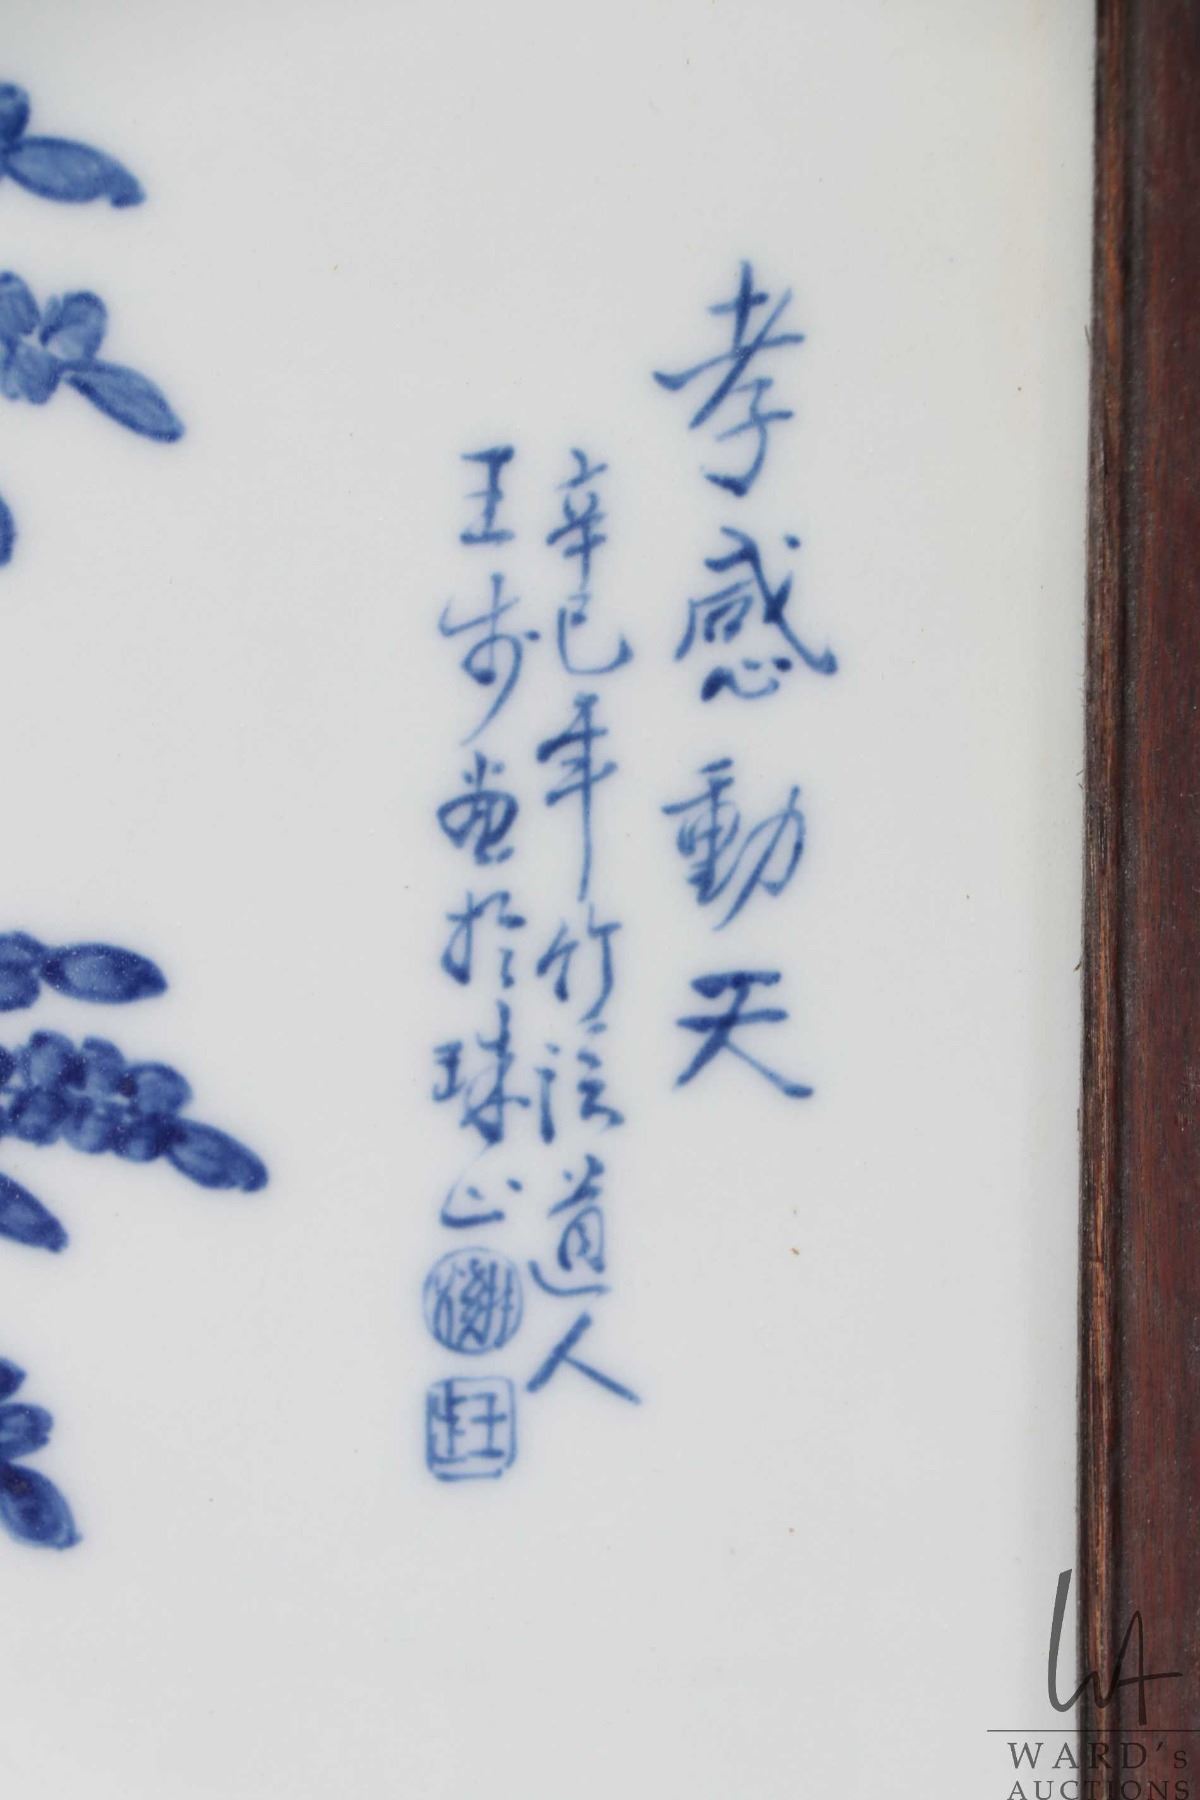 孝感動天
辛巳年竹溪道人
王步画於珠山
王步
WARD's
AUCTIONS